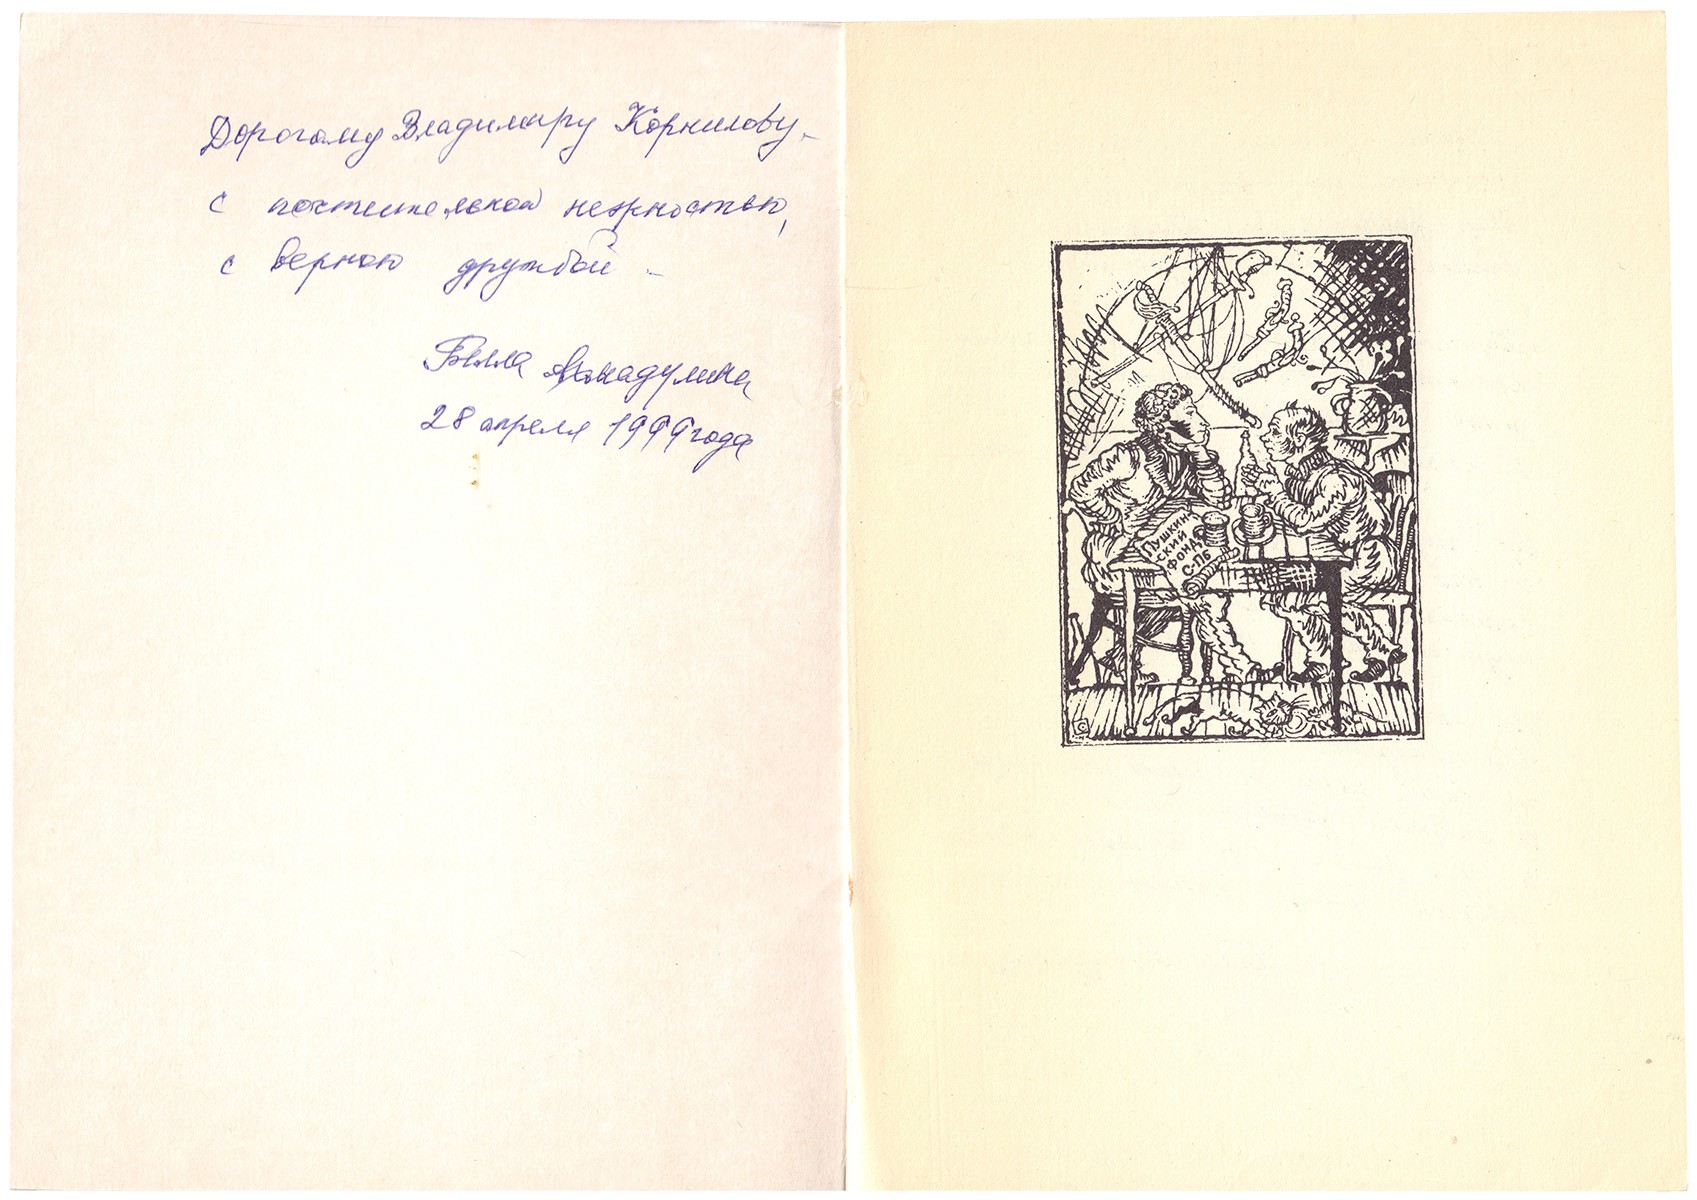 Дорогому Владимиру Корнилову –
с почтительной нежностью,
с верною дружбой –
Белла Ахмадулина
28 апреля 1999 года
ПУШКИН-
СКИЙ
ФОНД
С-ПБ